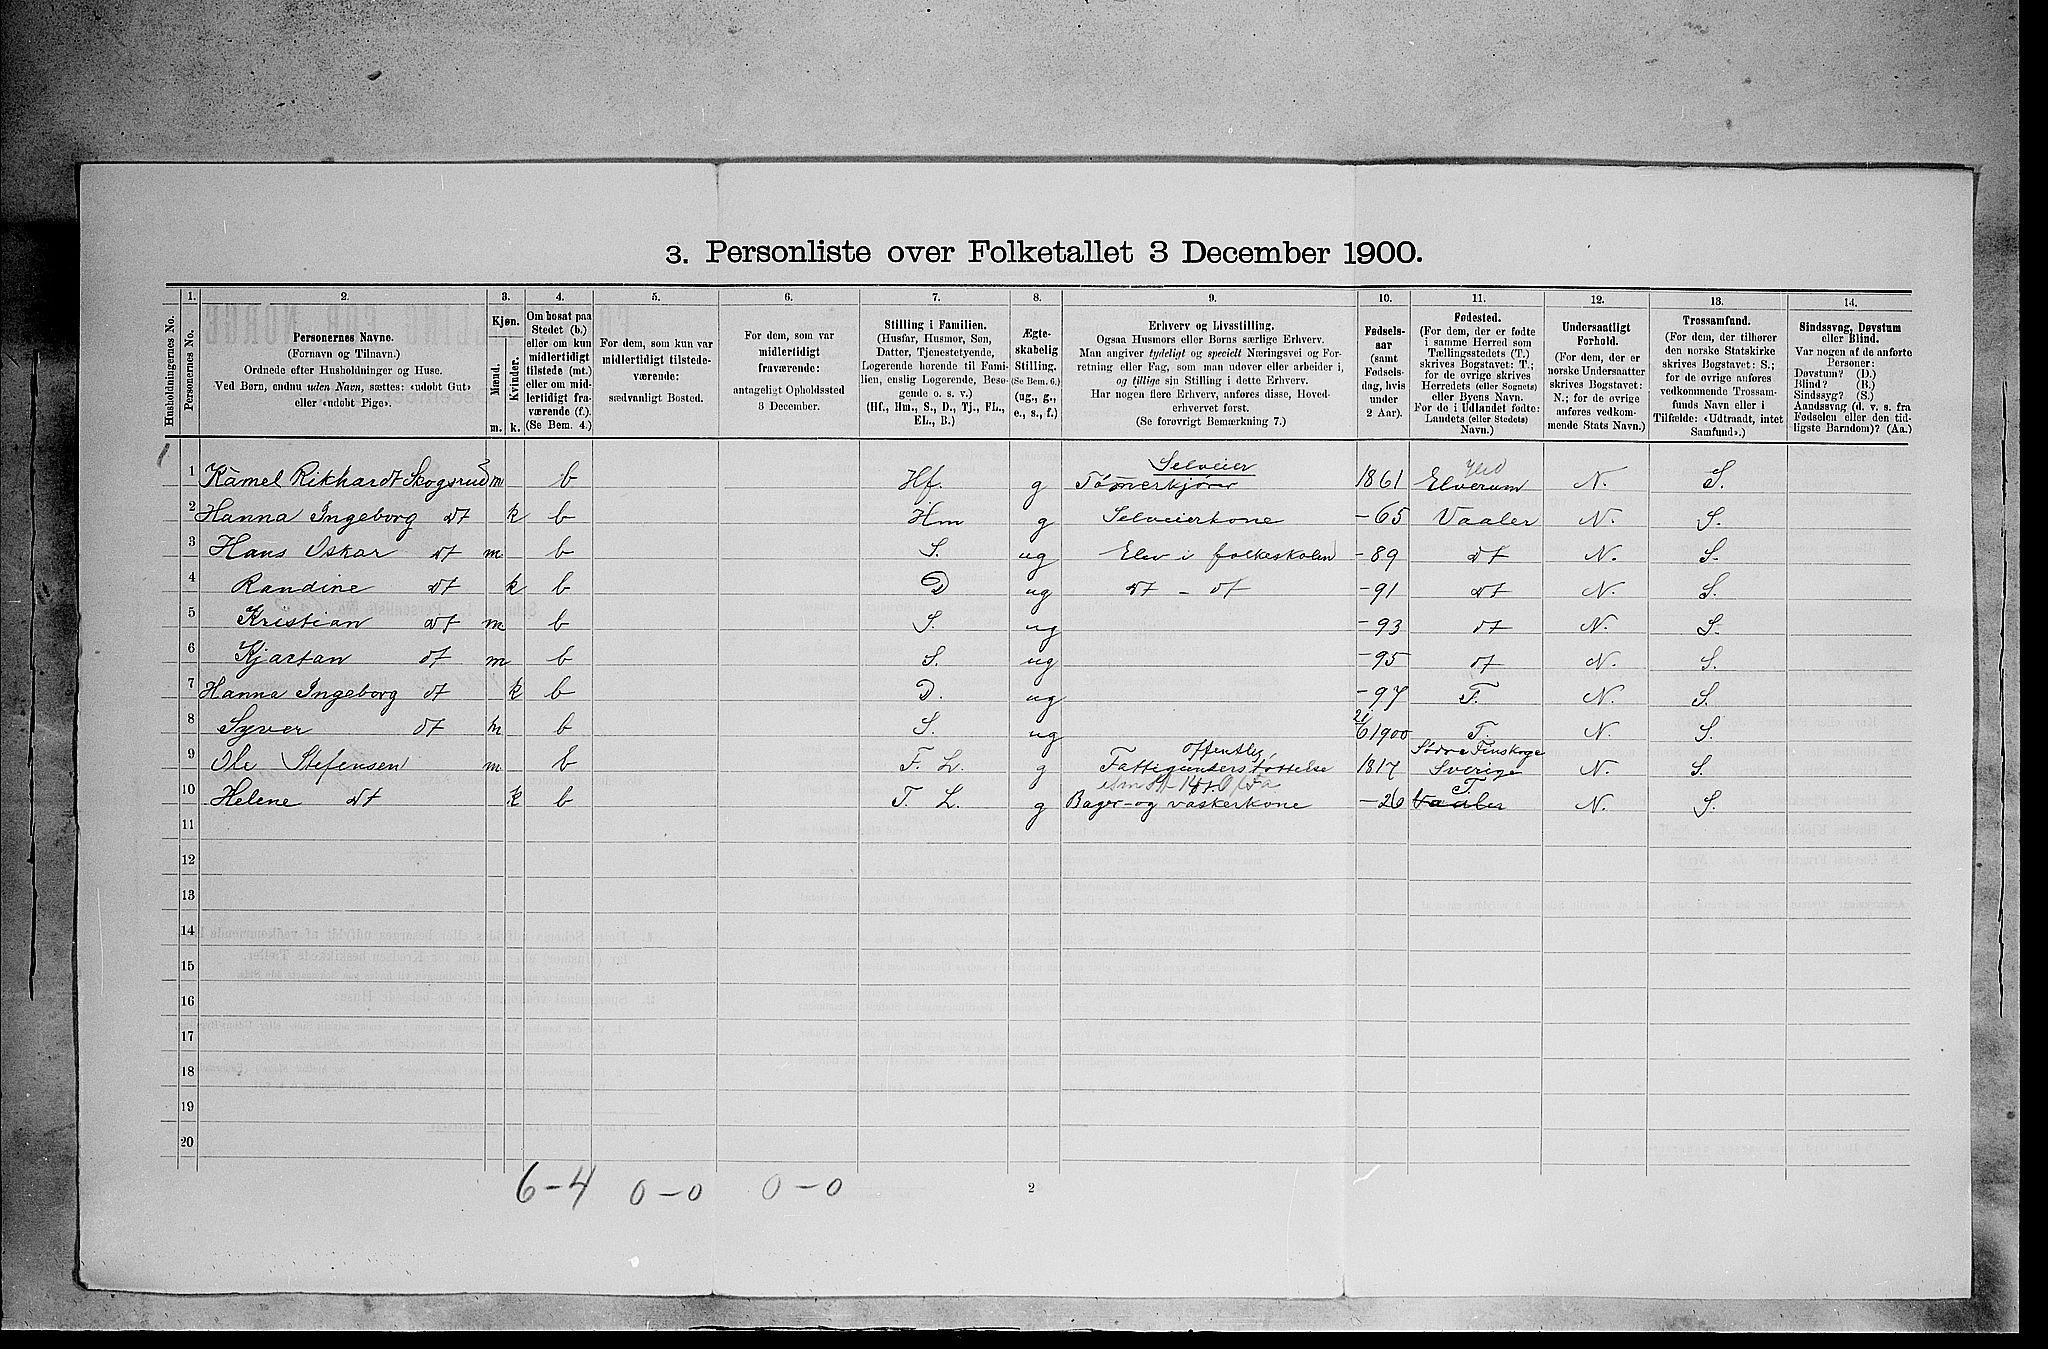 3. Personliste over Folketallet 3 December 1900.
Husholdningernes No.
1. Personernes No.
2. Personernes Navne. (Fornavn og Tilnavn.) Ordnede efter Husholdninger og Huse. Ved Børn, endnu uden Navn, sættes: «udøbt Gut» eller «udøbt Pige».
3. Kjøn. Mænd. m. Kvinder. k.
4. Om bosat paa Stedet (b.) eller om kun midlertidigt tilstede (mt.) eller om midlertidigt fraværende (f.). (Se Bem. 4.)
5. For dem, som kun var midlertidigt tilstedeværende: sædvanligt Bosted.
6. For dem, som var midlertidigt fraværende: antageligt Opholdssted 3 December.
7. Stilling i Familien. (Husfar, Husmor, Søn, Datter, Tjenestetyende, Logerende hørende til Familien, enslig Logerende, Besøgende o. s. v.) (Hf., Hm., S., D., Tj., FL., EL., B.)
8. Ægteskabelig Stilling. (Se Bem. 6.) (ug., g., e., s., f.)
9. Erhverv og Livsstilling. Ogsaa Husmors eller Børns særlige Erhverv. Man angiver tydeligt og specielt Næringsvei og Forretning eller Fag, som man udøver eller arbeider i, og tillige sin Stilling i dette Erhverv. Har nogen flere Erhverv, anføres disse, Hovederhvervet først. (Se forøvrigt Bemærkning 7.)
10. Fødselsaar (samt Fødselsdag, hvis under 2 Aar).
11. Fødested. (For dem, der er fødte i samme Herred som Tællingsstedets (T.) skrives Bogstavet: T.; for de øvrige skrives Herredets (eller Sognets) eller Byens Navn. For de i Udlandet fødte: Landets (eller Stedets) Navn.)
12. Undersaatligt Forhold. (For dem, der er norske Undersaatter skrives Bogstavet: N.; for de øvrige anføres vedkommende Stats Navn.)
13. Trossamfund. (For dem, der tilhører den norske Statskirke skrives Bogstavet: S.; for de øvrige anføres vedkommende Trossamfunds Navn eller i Tilfælde: «Udtraadt, intet Samfund».)
14. Sindssvag, Døvstum eller Blind. Var nogen af de anførte Personer: Døvstum? (D.) Blind? (B.) Sindssyg? (S.) Aandssvag (d. v. s. fra Fødselen eller den tidligste Barndom)? (Aa.)
1 Kamel Rikhardt Skogsrud m b Hf. g Selveier Tømerkjører 1861 Elverum N. S.
2 Hanna Ingeborg dt k b Hm g Selveierkone -65 Vaaler N. S.
3 Hans Oskar dt m b S. ug Elev i folkeskolen -89 dt N. S.
4 Randine dt k b D ug dt - dt -91 dt N. S.
5 Kristian dt m b S. ug -93 dt N. S.
6 Kjartan dt m b S. ug -95 dt N. S.
7 Hanna Ingeborg dt k b D. ug -97 T. N. S.
8 Syver dt m b S. ug 21/6 1900 T. N. S.
9 Ole Stefensen m b F. L. g offentlig Fattigunderstøttelse 1817 Søndre Finskoge Sverige N. S.
10 Helene dt k b F. L. g Bager- og vaskerkone -26 T Vaaler N. S.
11
12
13
14
15
16
17
18
19
20
6-4 0-0 0-0
2